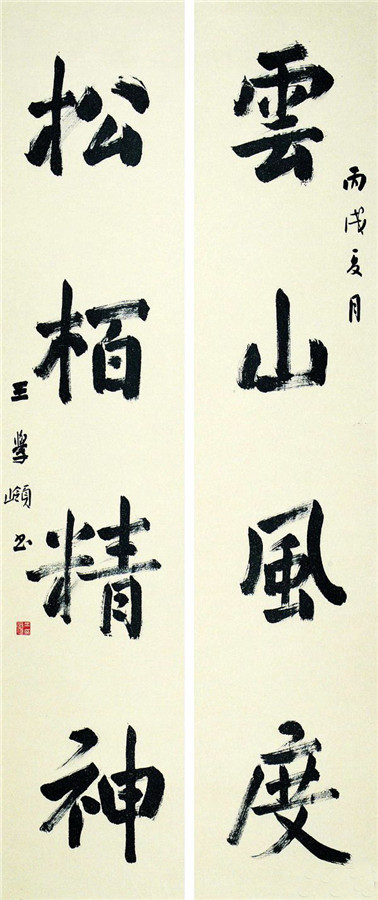 雲山風度
丙戌夏月
松栢精神
王學嶺书